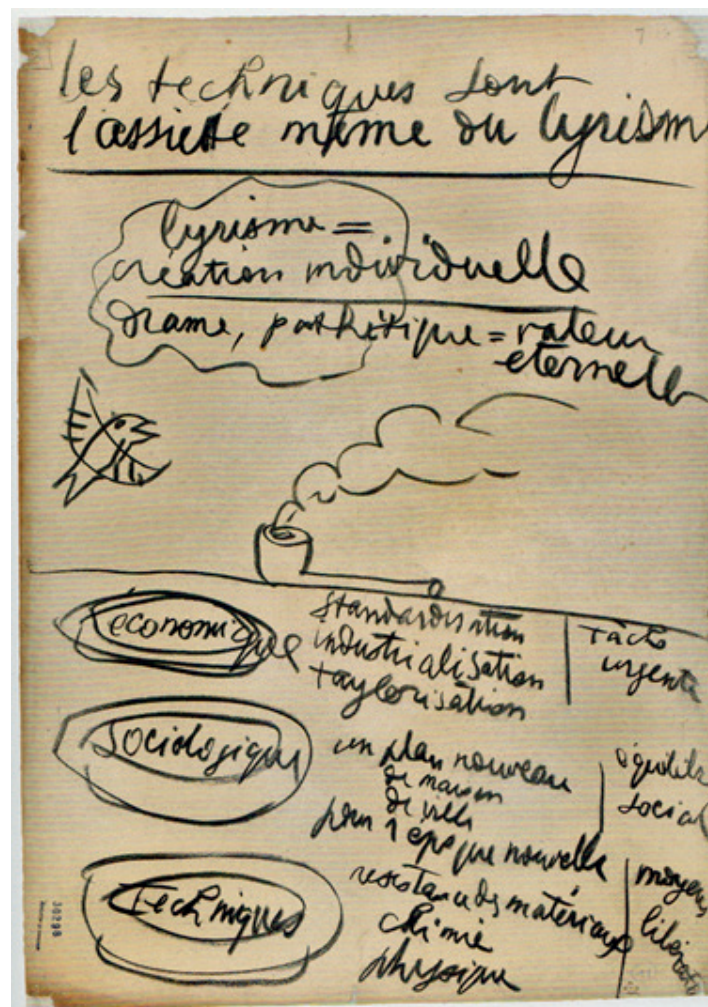 les techniques sont
l'assiette même du lyrism
lyrisme =
création individuelle
drame, pathétique = valeur
eternelle
économique
standardisation
industrialisation
taylorisation
tâche
urgente
sociologique
un plan nouveau
de maison
de ville
pour 1 époque nouvelle
équilibre
social
techniques
resistance des matériaux
chimie
physique
moyens
libérate
30298